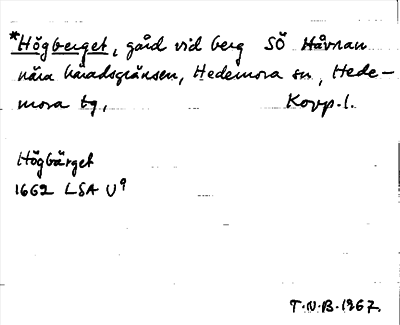 *Högberget, gård vid berg SÖ Håvran
nära häradsgränsen, Hedemora sn, Hede-
mora tg, Kopp.l.
Högbärget
1662 LSA U9
T.N.B. 1967.